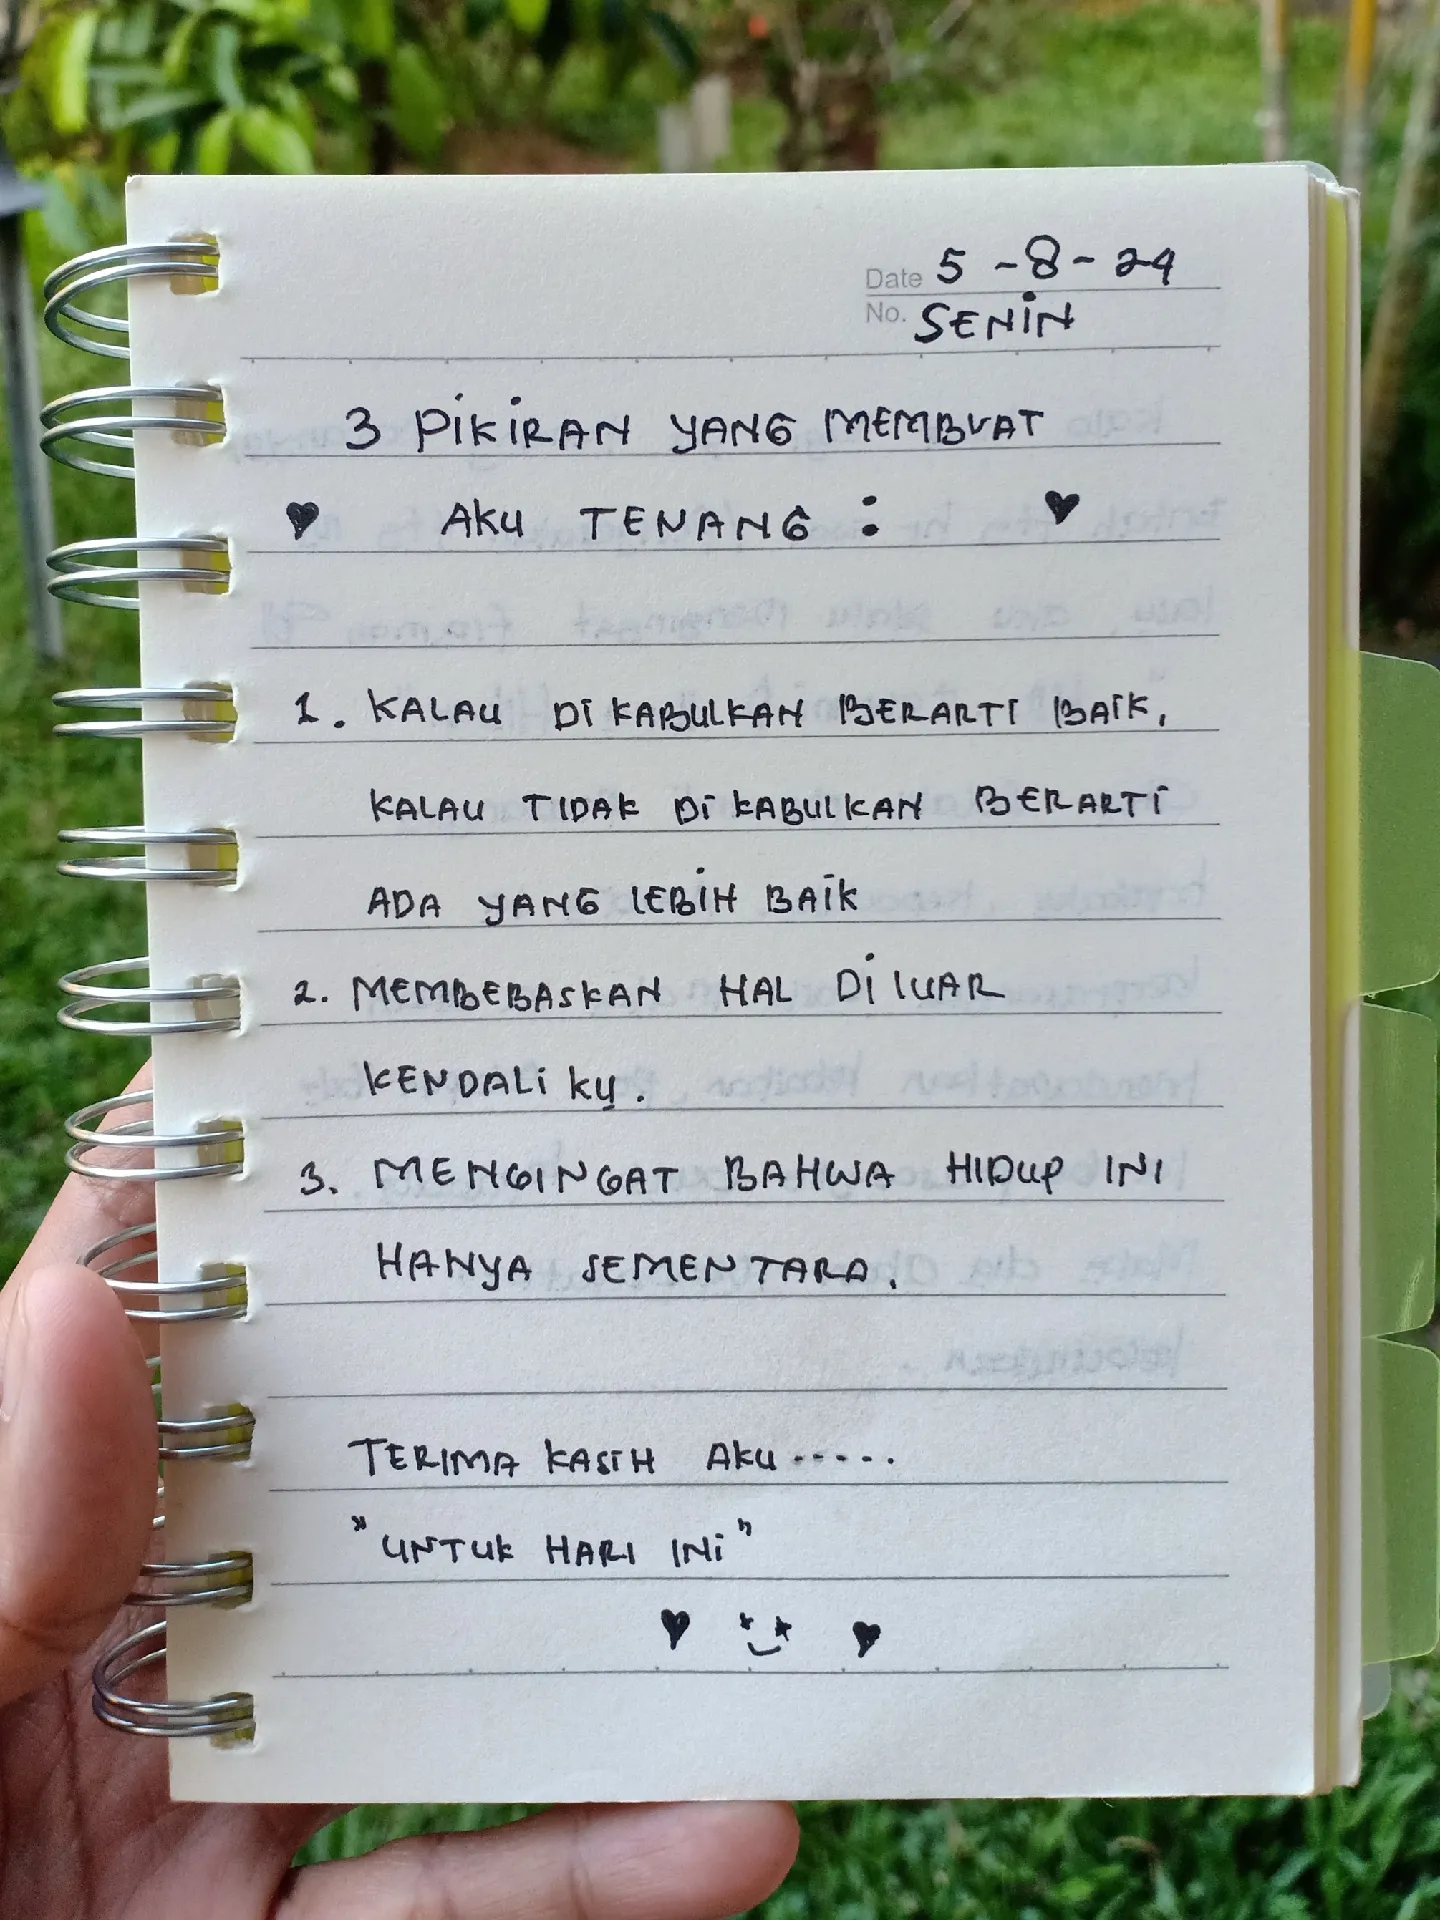 Date 5-8-24
No. SENIN
3 PIKIRAN YANG MEMBUAT
♥ AKU TENANG : ♥
1. KALAU DI KABULKAN BERARTI BAIK,
KALAU TIDAK DI KABULKAN BERARTI
ADA YANG LEBIH BAIK
2. MEMBEBASKAN HAL DI LUAR
KENDALI KU.
3. MENGINGAT BAHWA HIDUP INI
HANYA SEMENTARA.
TERIMA KASIH AKU .....
"UNTUK HARI INI"